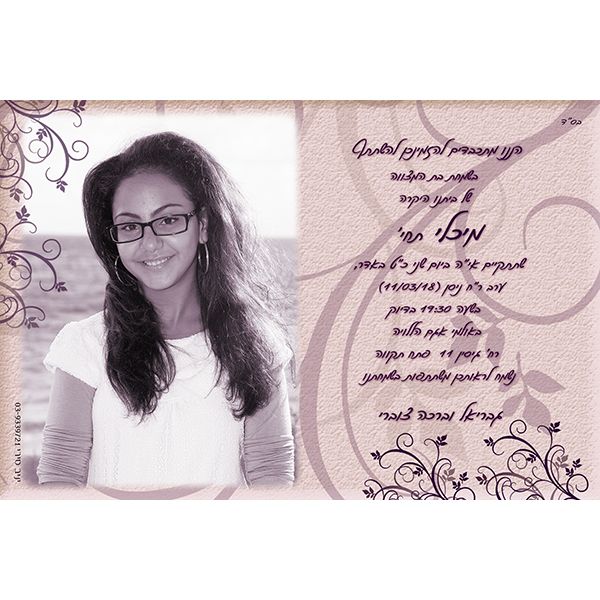 בס"ד
הננו מתכבדים להזמינכן להשתתף
בשמחת בת המצווה
של ביתנו היקרה
מיכלי תחי'
שתתקיים אי"ה ביום שני כ"ט באדר,
ערב ר"ח ניסן (11/03/18)
בשעה 19:30 בדיוק
באולמי אגם הלוויה
רח' גיסין 11 פתח תקווה
נשמח לראותכן משתתפות בשמחתנו
גבריאל וברכה צוברי
03-9339721